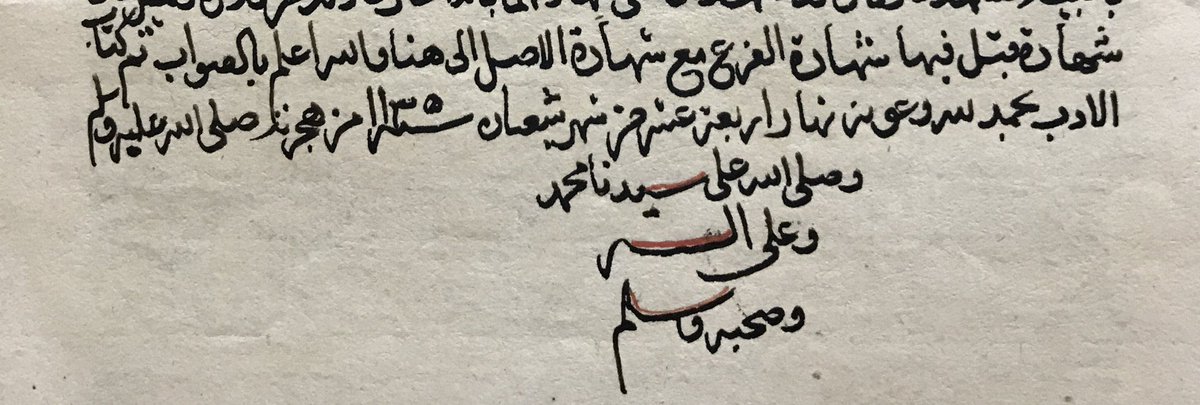 شهادة قبل فيها شهادة الفرع مع شهادة الاصل الى هنا والله اعلم بالصواب تم كتاب
الادب بحمد لله وعونه نهار اربعة عشر من شهر شعبان سنة من هجرته صلى الله عليه وسلم
وصلى الله على سيدنا محمد
وعلى اله
وصحبه وسلم